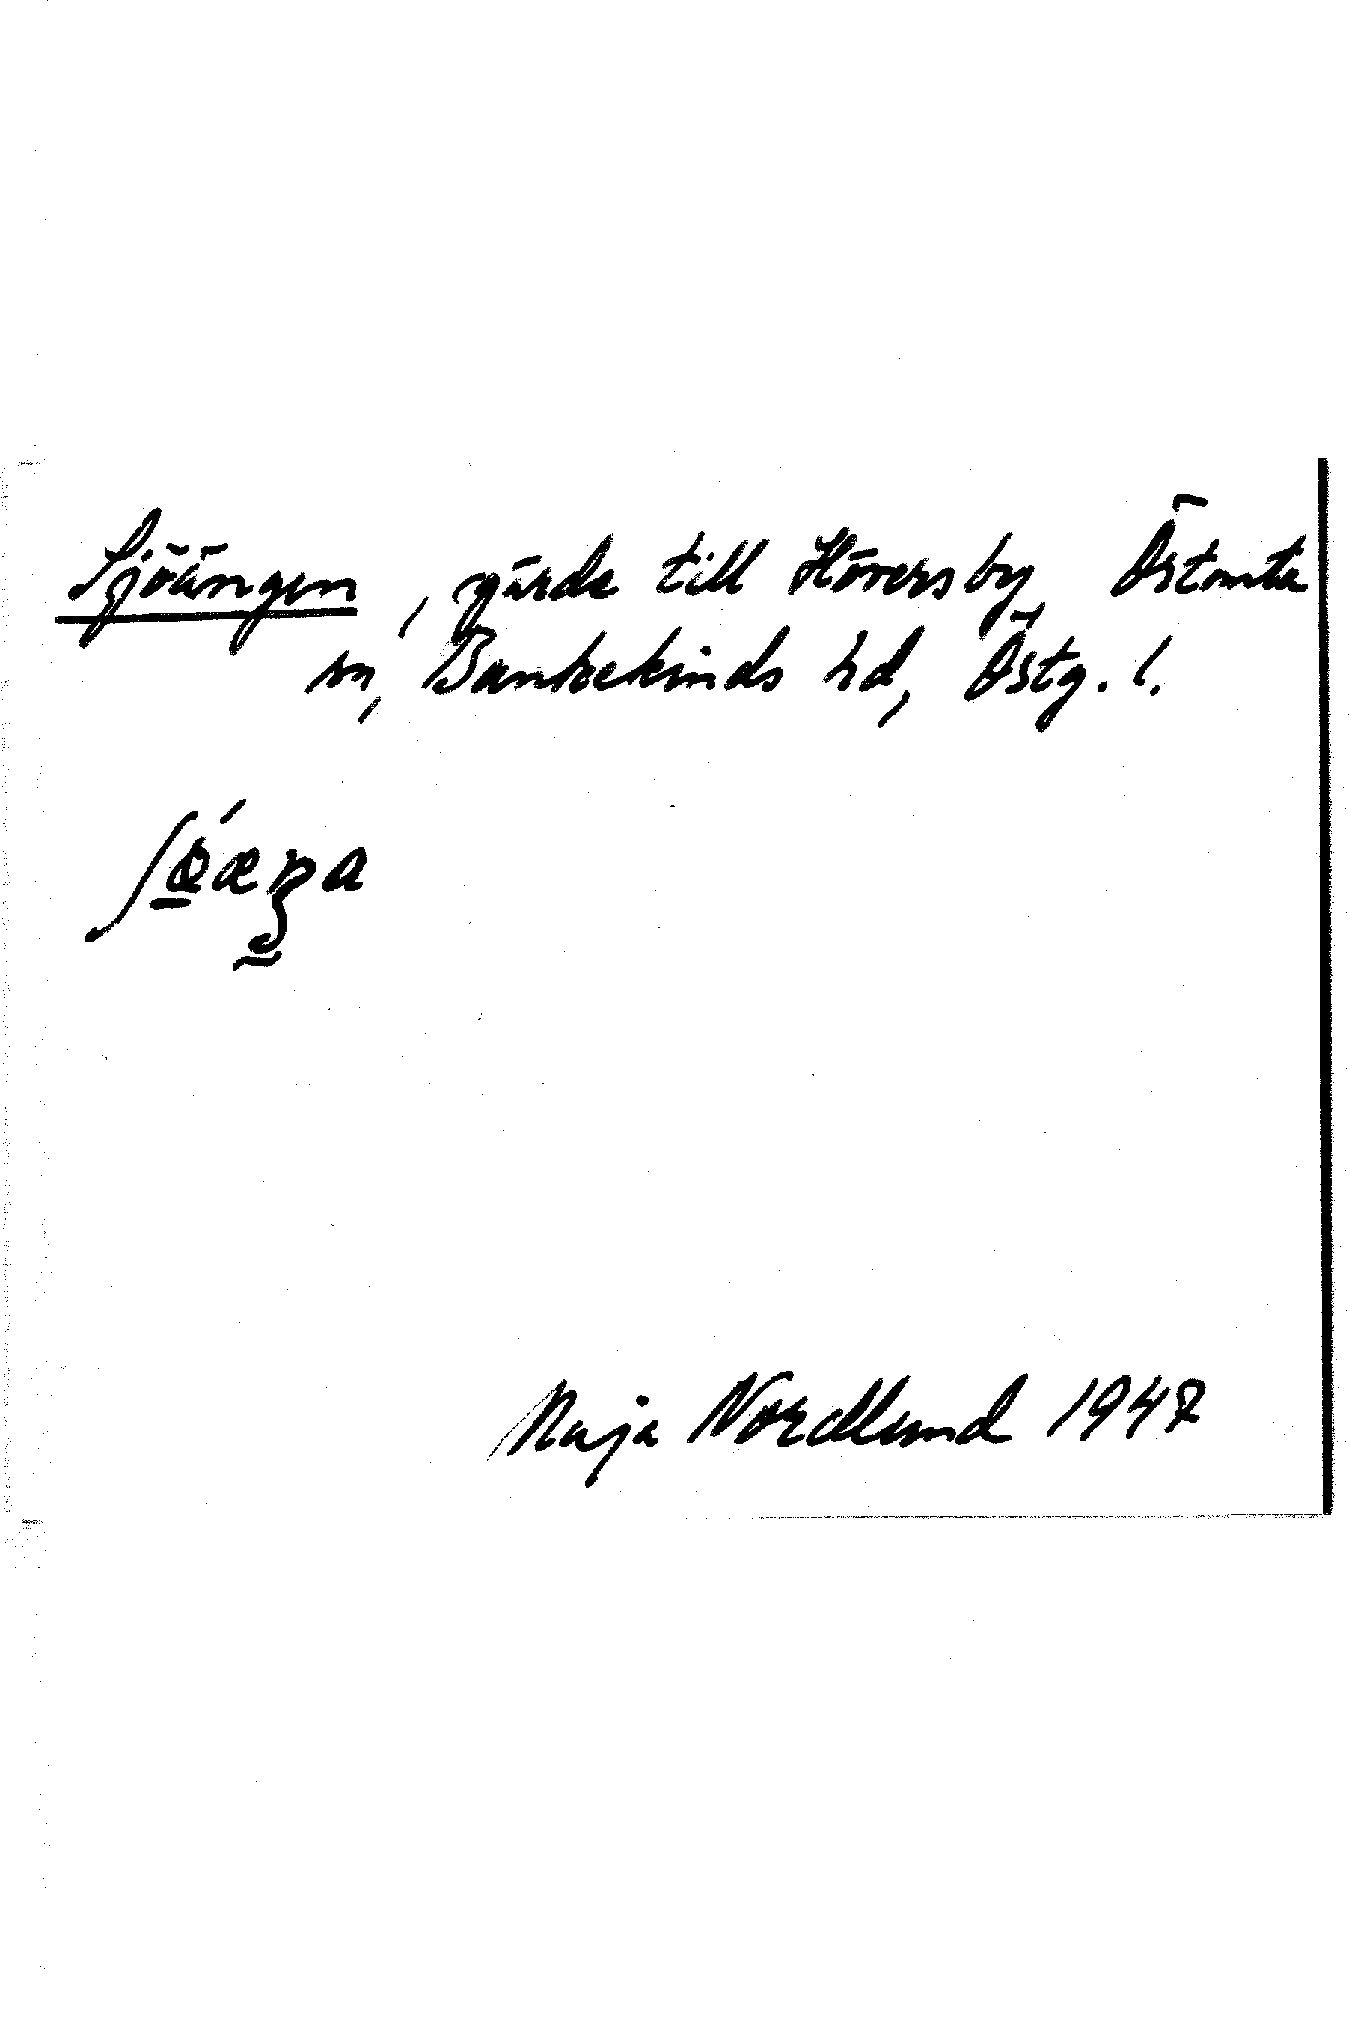 Sjöängen, gärde till Höversby Östomta
sn, Bankekinds hd, Östg. l.
Maja Nordlund 1947